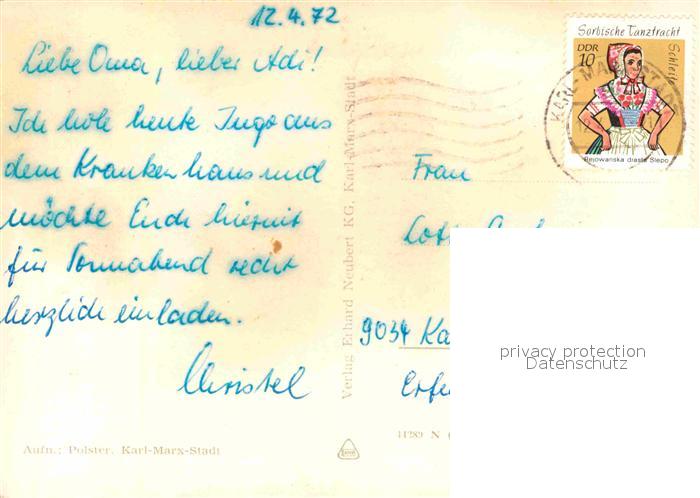 12.4.72
Liebe Oma, lieber Adi!
Ich hole heute Ingo aus
dem Krankenhaus und
möchte Euch hiermit
für Sonnabend recht
herzlich einladen.
Christel
Aufn.: Polster, Karl-Marx-Stadt
Verlag Erhard Neubert KG, Karl-Marx-Stadt
Sorbische Tanztracht
DDR
10
Schleife
Rejowańska drasta Slepo
KARL-MARX-STADT
Frau
9034 Ka
41289 N
privacy protection
Datenschutz